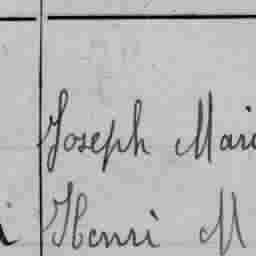 Joseph Mari
i Henri M